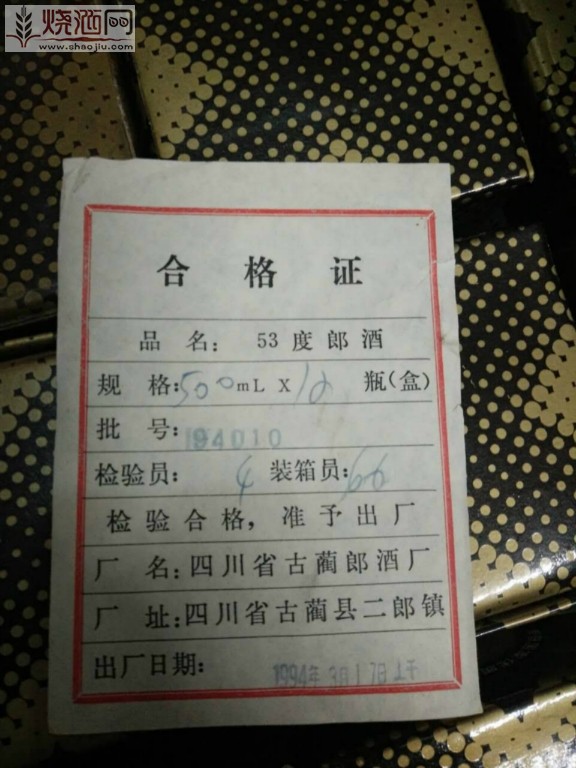 烧酒网
www.shaojiu.com
合格证
品名：53度郎酒
规格：500mL X 12 瓶(盒)
批号：94010
检验员：4 装箱员：66
检验合格，准予出厂
厂名：四川省古蔺郎酒厂
厂址：四川省古蔺县二郎镇
出厂日期：1994年3月17日上午